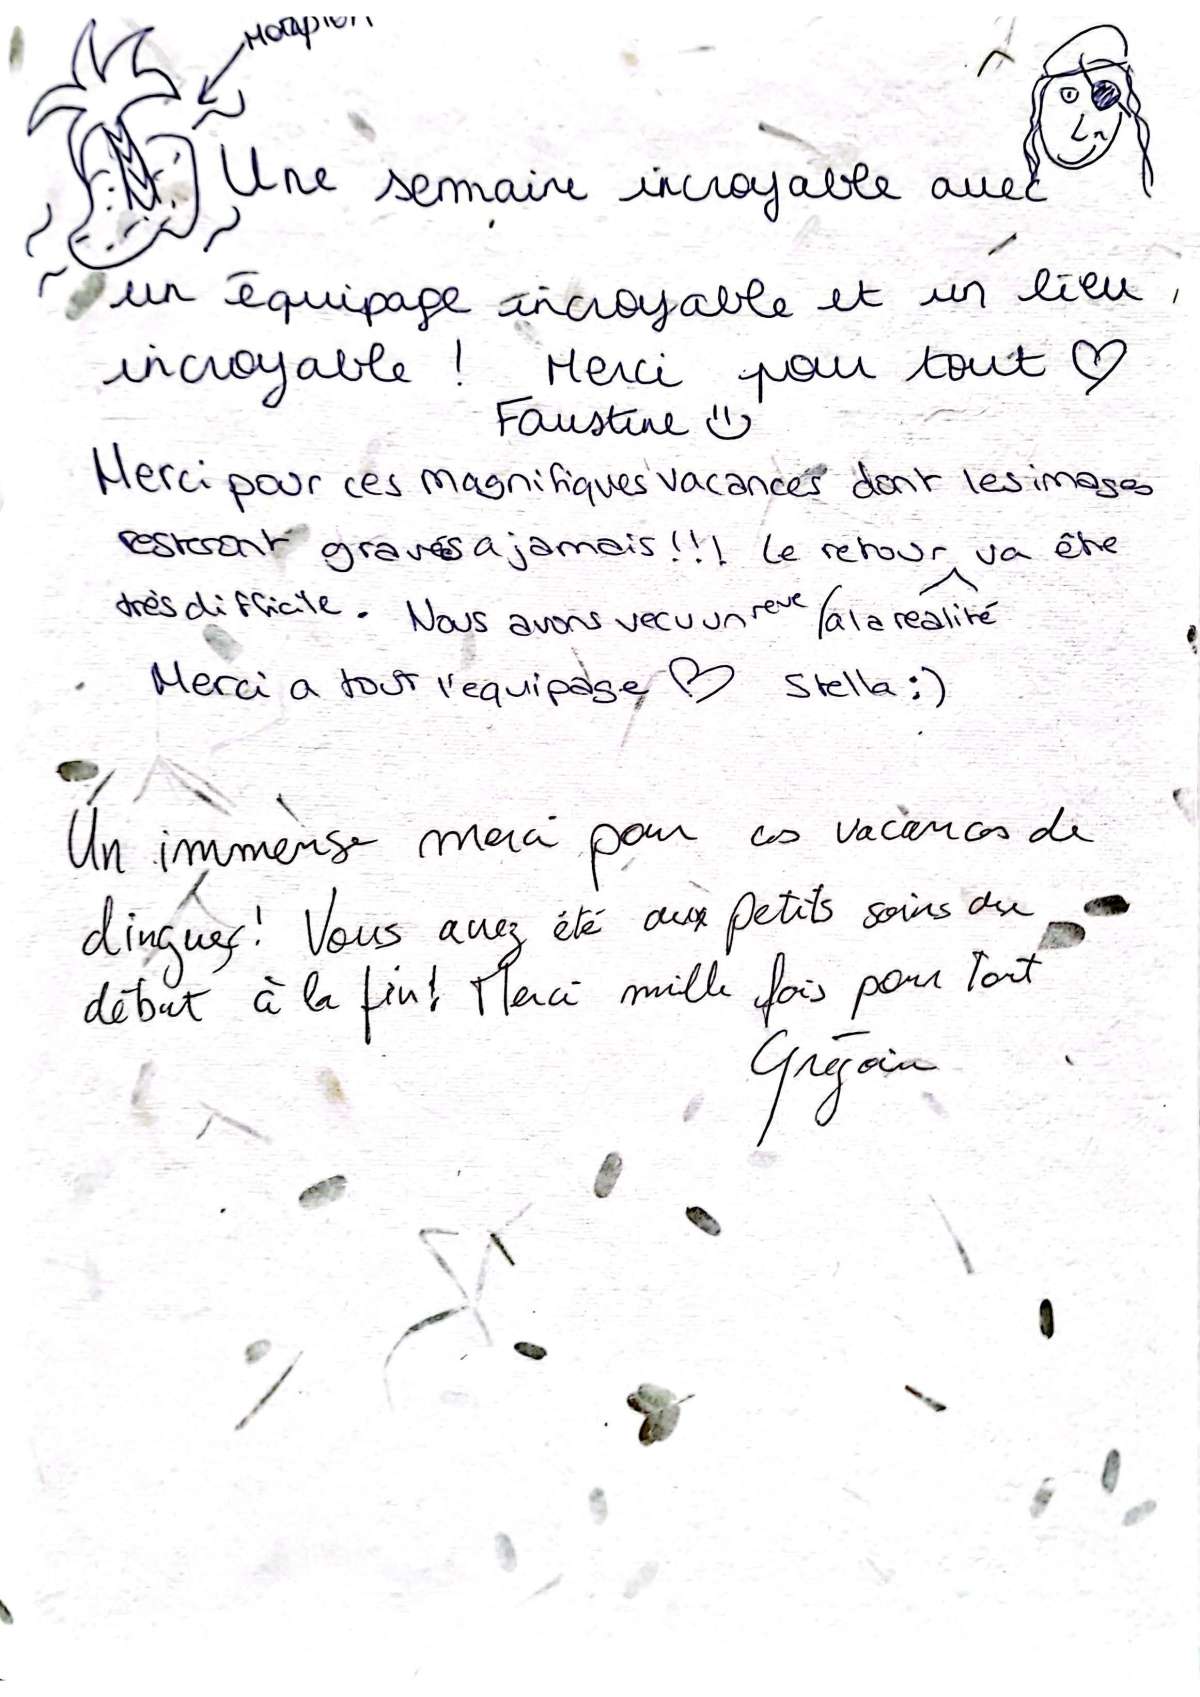 Une semaine incroyable avec
un équipage incroyable et un lieu
incroyable ! Merci pour tout ♡
Faustine
Merci pour ces magnifiques vacances dont les images
resteront gravés a jamais !!! Le retour va être
très difficile. Nous avons vecu un reve /a la réalité
Merci a tout l'equipage ♡ Stella :)
Un immense merci pour ces vacances de
dingues! Vous avez été aux petits soins du
début à la fin! Merci mille fois pour tout
Grégoire